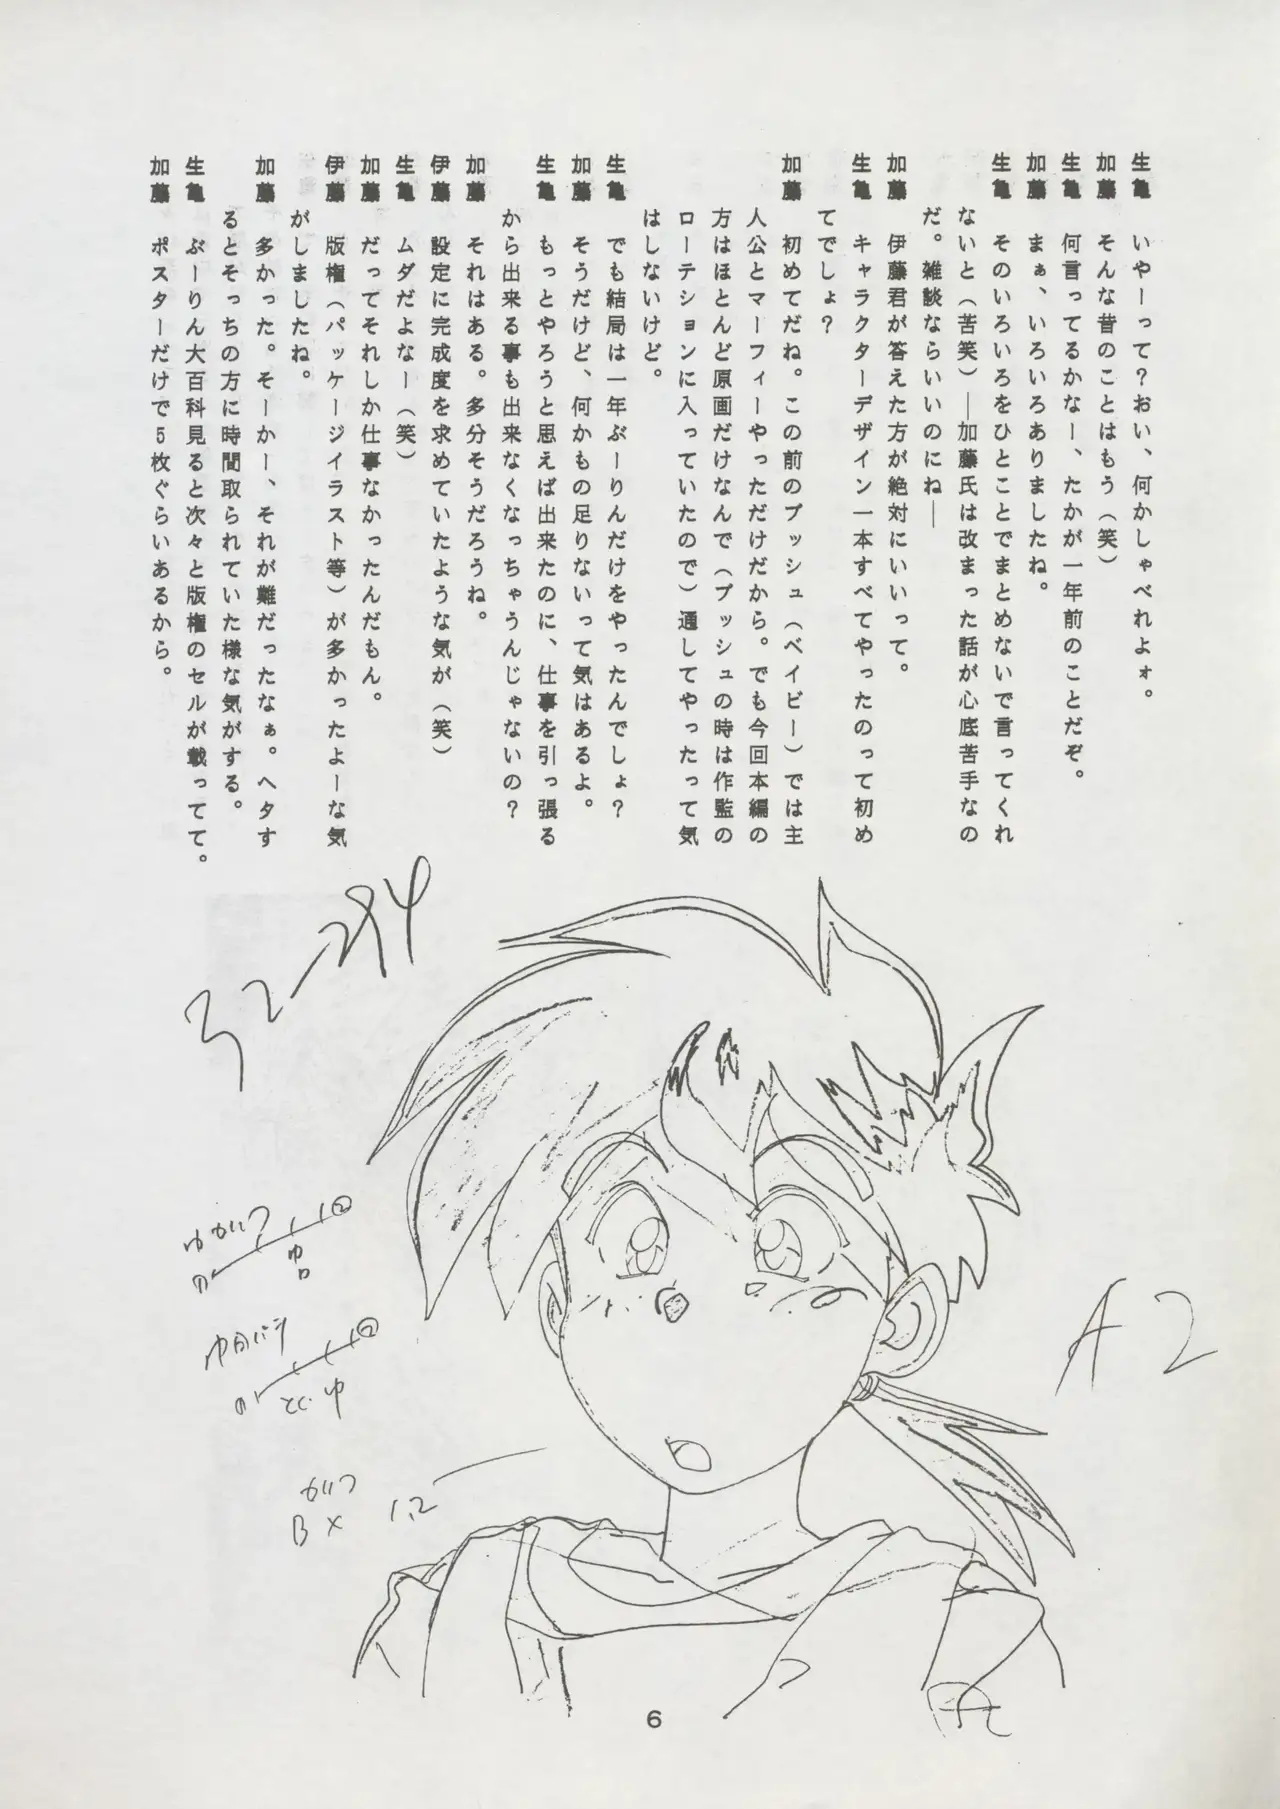 生亀　いやーって？おい、何かしゃべれよォ。
加藤　そんな昔のことはもう（笑）
生亀　何言ってるかなー、たかが一年前のことだぞ。
加藤　まぁ、いろいろありましたね。
生亀　そのいろいろをひとことでまとめないで言ってくれ
ないと（苦笑）―加藤氏は改まった話が心底苦手なの
だ。雑談ならいいのにね―
加藤　伊藤君が答えた方が絶対にいいって。
生亀　キャラクターデザイン一本すべてやったのって初め
てでしょ？
加藤　初めてだね。この前のブッシュ（ベイビー）では主
人公とマーフィーやっただけだから。でも今回本編の
方はほとんど原画だけなんで（ブッシュの時は作監の
ローテションに入っていたので）通してやったって気
はしないけど。
生亀　でも結局は一年ぶーりんだけをやったんでしょ？
加藤　そうだけど、何かもの足りないって気はあるよ。
生亀　もっとやろうと思えば出来たのに、仕事を引っ張る
から出来る事も出来なくなっちゃうんじゃないの？
加藤　それはある。多分そうだろうね。
伊藤　設定に完成度を求めていたような気が（笑）
生亀　ムダだよなー（笑）
加藤　だってそれしか仕事なかったんだもん。
伊藤　版権（パッケージイラスト等）が多かったよーな気
がしましたね。
加藤　多かった。そーかー、それが難だったなぁ。ヘタす
るとそっちの方に時間取られていた様な気がする。
生亀　ぶーりん大百科見ると次々と版権のセルが載ってて。
加藤　ポスターだけで５枚ぐらいあるから。
32-294
A2
B×
1.2
6